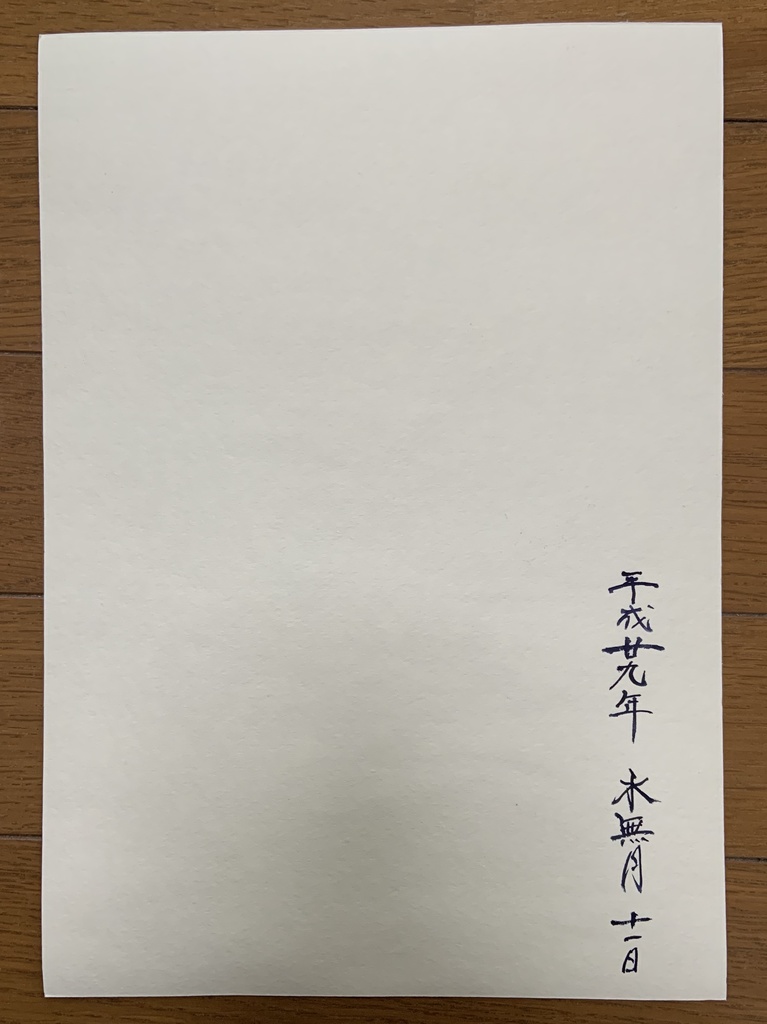 平成廿九年 水無月 十一日